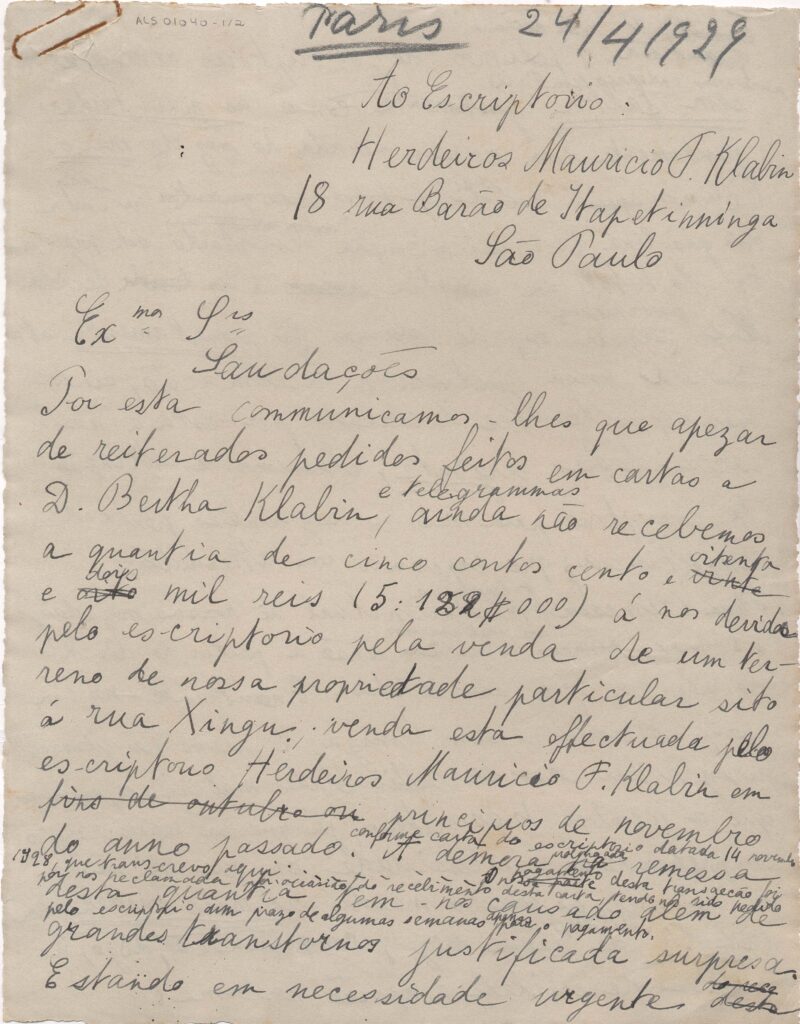 ALS 01040-1/2
Paris 24/4/1929
Ao Escriptorio.
Herdeiros Mauricio F. Klabin
18 rua Barão de Itapetinninga
São Paulo
Ex mos Srs
Saudações
Por esta communicamos-lhes que apezar
de reiterados pedidos feitos em cartas a
e telegrammas
D. Bertha Klabin, ainda não recebemos
a quantia de cinco contos cento e vinte oitenta
e oito dois mil reis (5:182$000) á nos devida
pelo escriptorio pela venda de um ter-
reno de nossa propriedade particular sito
á rua Xingu, venda esta effectuada pelo
escriptorio Herdeiros Mauricio F. Klabin em
fins de outubro ou principios de novembro
do anno passado. conforme carta do escriptorio datada 14 novembro
1928, que transcrevo aqui. A demora prolongada na remessa
O pagamento nossa parte desta transacção foi
por nos reclamada na occasião do recebimento desta carta, tendo nos sido pedido
desta quantia tem-nos causado além de
pelo escriptorio um prazo de algumas semanas para o pagamento.
grandes transtornos justificada surpresa.
Estando em necessidade urgente